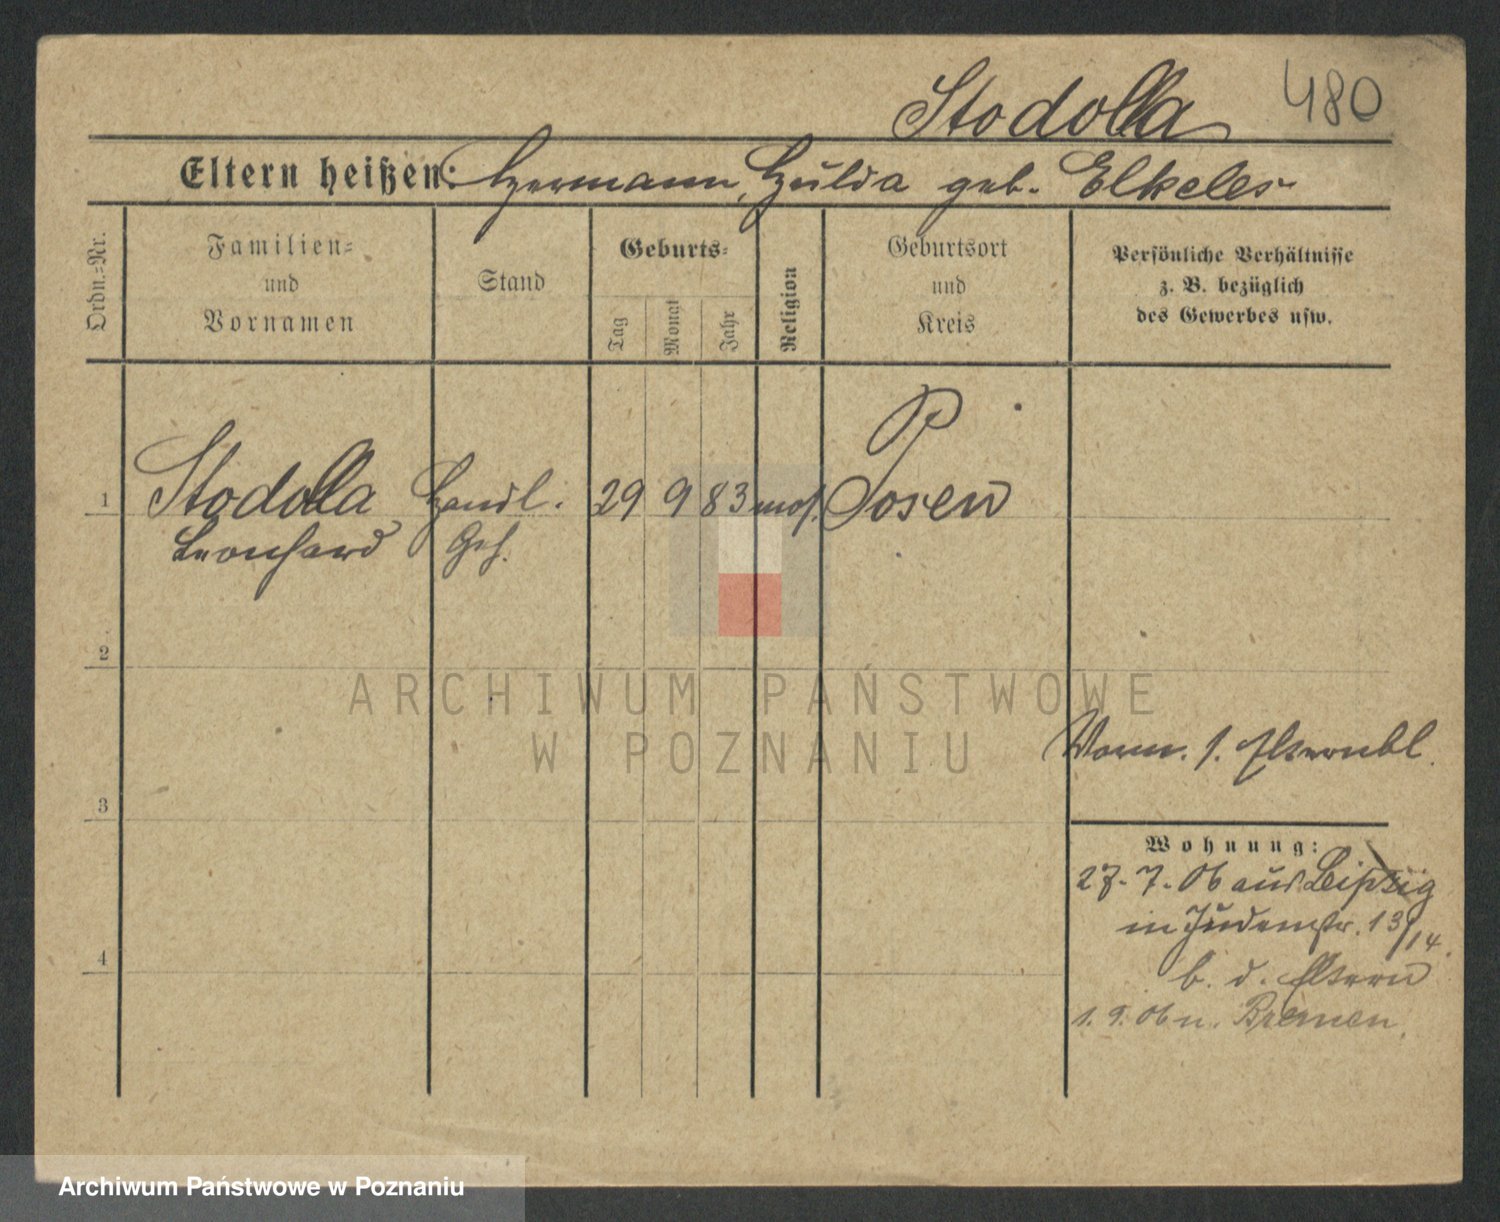 480
Stodolla
Eltern heißen: Hermann, Hulda geb. Elkeles
Ordn.=Nr.
Familien=
und
Vornamen
Stand
Geburts=
Tag
Monat
Jahr
Religion
Geburtsort
und
Kreis
Persönliche Verhältnisse
z. B. bezüglich
des Gewerbes usw.
P
1 Stodolla Handl. 29 9 83 mos. Posen
Leonhard Geh.
2
ARCHIWUM PAŃSTWOWE
W POZNANIU
Vorm. s. Elternbl.
3
Wohnung:
27. 7. 06 aus Leipzig
in Judenstr. 13/14.
b. d. Eltern
4
1. 9. 06 n. Bremen.
Archiwum Państwowe w Poznaniu